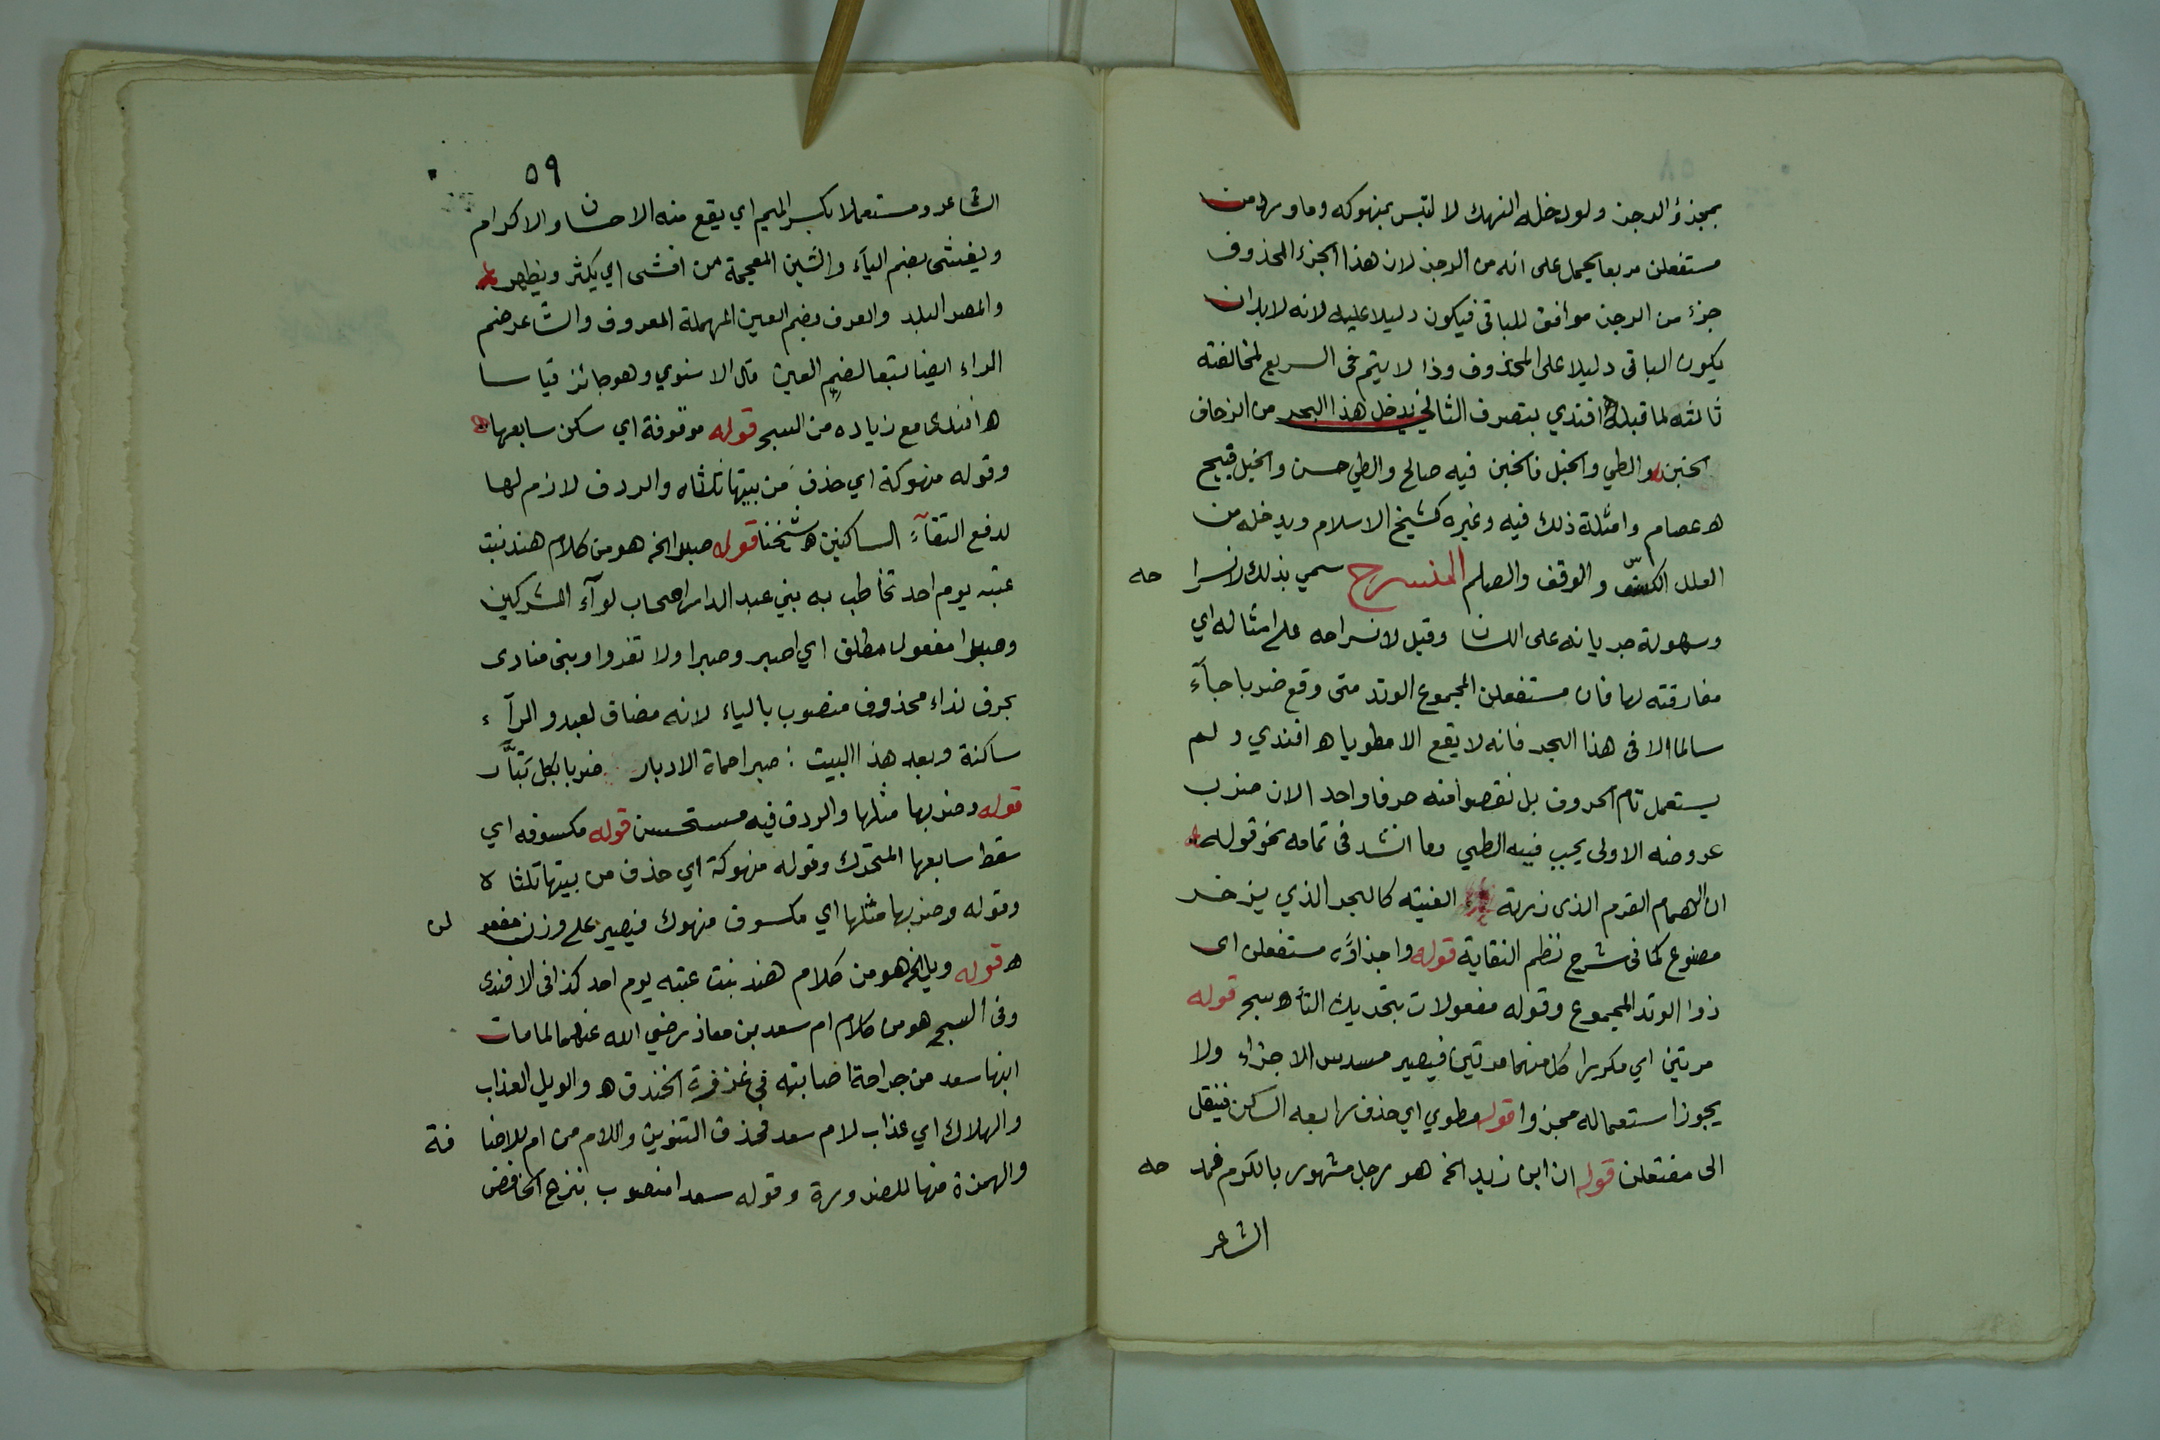 بمجزؤ الرجز ولو دخله النهك لا لتبس بمنهوكه وما ورد من
مستفعلن مربعا يحمل على انه من الرجز لان هذا الجزء المحذوف
جزء من الرجز موافق للباقي فيكون دليلا عليه لانه لا بد ان
يكون الباقي دليلا على المحذوف وذا لا يتم في السريع لمخالفته
ثالثه لما قبله اه افندي بتصرف الثاني يدخل هذا البحر من الزحاف
الخبن والطي والخبل فالخبن فيه صالح والطي حسن والخبل قبيح
اه عصام وامثلة ذلك فيه وغيره كشيخ الاسلام ويدخله من
العلل الكسف والوقف والصلم المنسرح سمي بذلك لانسرا حه
وسهولة جريانه على اللسان وقيل لانسراحه على امثاله اي
مفارقته لها فان مستفعلن المجموع الوتد متى وقع ضربا جآء
سالما الا في هذا البحر فانه لا يقع الا مطويا اه افندي ولم
يستعمل تام الحروف بل نقصوا منه حرفا واحد الان ضرب
عروضه الاولى يجب فيه الطي وما انشد في تمامه نحو قوله
ان الهمام القرم الذى زرته الفيته كالبحر الذي يزخر
مصنوع كما في شرح نظم النقاية قوله واجزاؤه مستفعلن اى
ذوا الوتد المجموع وقوله مفعولات بتحريك التاء اه سبح قوله
مرتين اي مكررا كل منهما مرتين فيصير مسدس الاجزاء ولا
يجوز استعماله مجزوا قوله مطوي اي حذف رابعه الساكن فينقل
الى مفتعلن قوله ان ابن زيد الخ هو رجل مشهور بالكرم فمد حه
الشاعر
٥٩
الشاعر ومستعملا بكسر الميم اي يقع منه الاحسان والاكرام
ويفشى بضم اليآء والشين المعجمة من افشى اي يكثر ويظهر
والمصر البلد والعرف بضم العين المهملة المعروف والشاعر ضم
الراء ايضا تبعا لضم العين قال الاسنوي وهو جائز قياسا
اه افندى مع زياده من السبح قوله موقوفة اي سكن سابعها
وقوله منهوكة اي حذف من بيتها ثلثاه والردف لازم لها
لدفع التقآء الساكنين اه شيخنا قوله صبرا الخ هو من كلام هند بنت
عتبه يوم احد تخاطب به بني عبد الدار اصحاب لوآء المشركين
وصبرا مفعول مطلق اي اصبر وصبرا ولا تفروا وبني منادى
بحرف نداء محذوف منصوب بالياء لانه مضاف لعبد والرآء
ساكنة وبعد هذا البيت : صبرا حماة الادبار ضربا بكل بتار
قوله وضربها مثلها والردف فيه مستحسن قوله مكسوفه اي
سقط سابعها المتحرك وقوله منهوكة اي حذف من بيتها ثلثاه
وقوله وضربها مثلها اي مكسوف منهوك فيصير على وزن مفعو لن
اه قوله ويل الخ هو من كلام هند بنت عتبه يوم احد كذا في الافندى
وفي السبح هو من كلام ام سعد بن معاذ رضي الله عنهما لما مات
ابنها سعد من جراحة اصابته في غزوة الخندق اه والويل العذاب
والهلاك اي عذاب لام سعد فحذف التنوين واللام من ام للاضا فة
والهمزة منها للضرورة وقوله سعدا منصوب بنزع الخافض